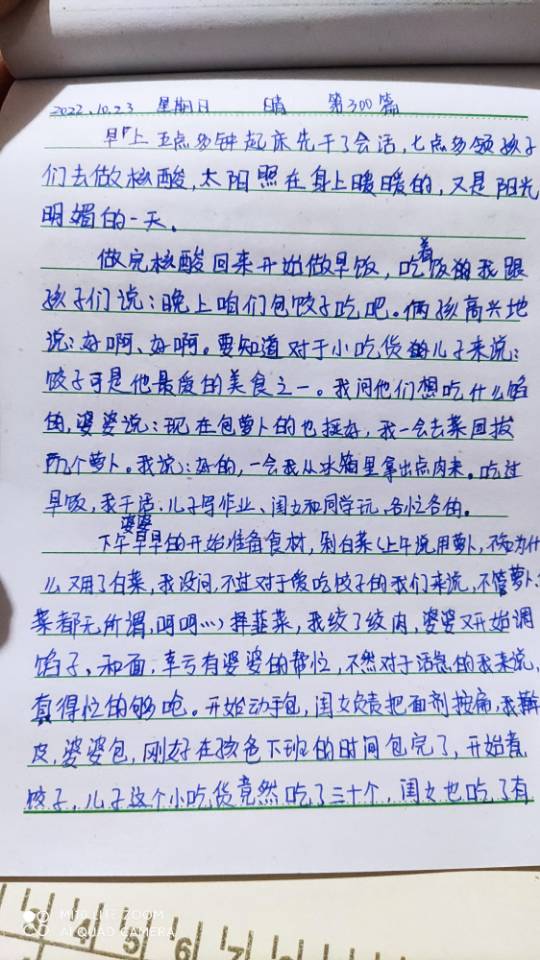 2022.10.23 星期日 晴 第300篇
早上五点多钟起床先干了会活,七点多领孩子
们去做核酸,太阳照在身上暖暖的,又是阳光
明媚的一天。
做完核酸回来开始做早饭,吃着饭的我跟
孩子们说:晚上咱们包饺子吃吧。俩孩高兴地
说:好啊、好啊。要知道对于小吃货的儿子来说:
饺子可是他最爱的美食之一。我问他们想吃什么馅
的,婆婆说:现在包萝卜的也挺好,我一会去菜园拔
两个萝卜。我说:好的,一会我从冰箱里拿出点肉来。吃过
早饭,我干活、儿子写作业、闺女和同学玩,各忙各的。
下午婆婆早早的开始准备食材,剁白菜(上午说用萝卜,不知为什
么又用了白菜,我没问,不过对于爱吃饺子的我们来说,不管萝卜、
菜都无所谓,呵呵…)择韭菜,我绞了绞肉,婆婆又开始调
馅子、和面,幸亏有婆婆的帮忙,不然对于活急的我来说,
真得忙的够呛。开始动手包,闺女负责把面剂按扁,我擀
皮,婆婆包,刚好在孩爸下班的时间包完了,开始煮
饺子,儿子这个小吃货竟然吃了三十个,闺女也吃了有
MI 10 LITE ZOOM
AI QUAD CAMERA